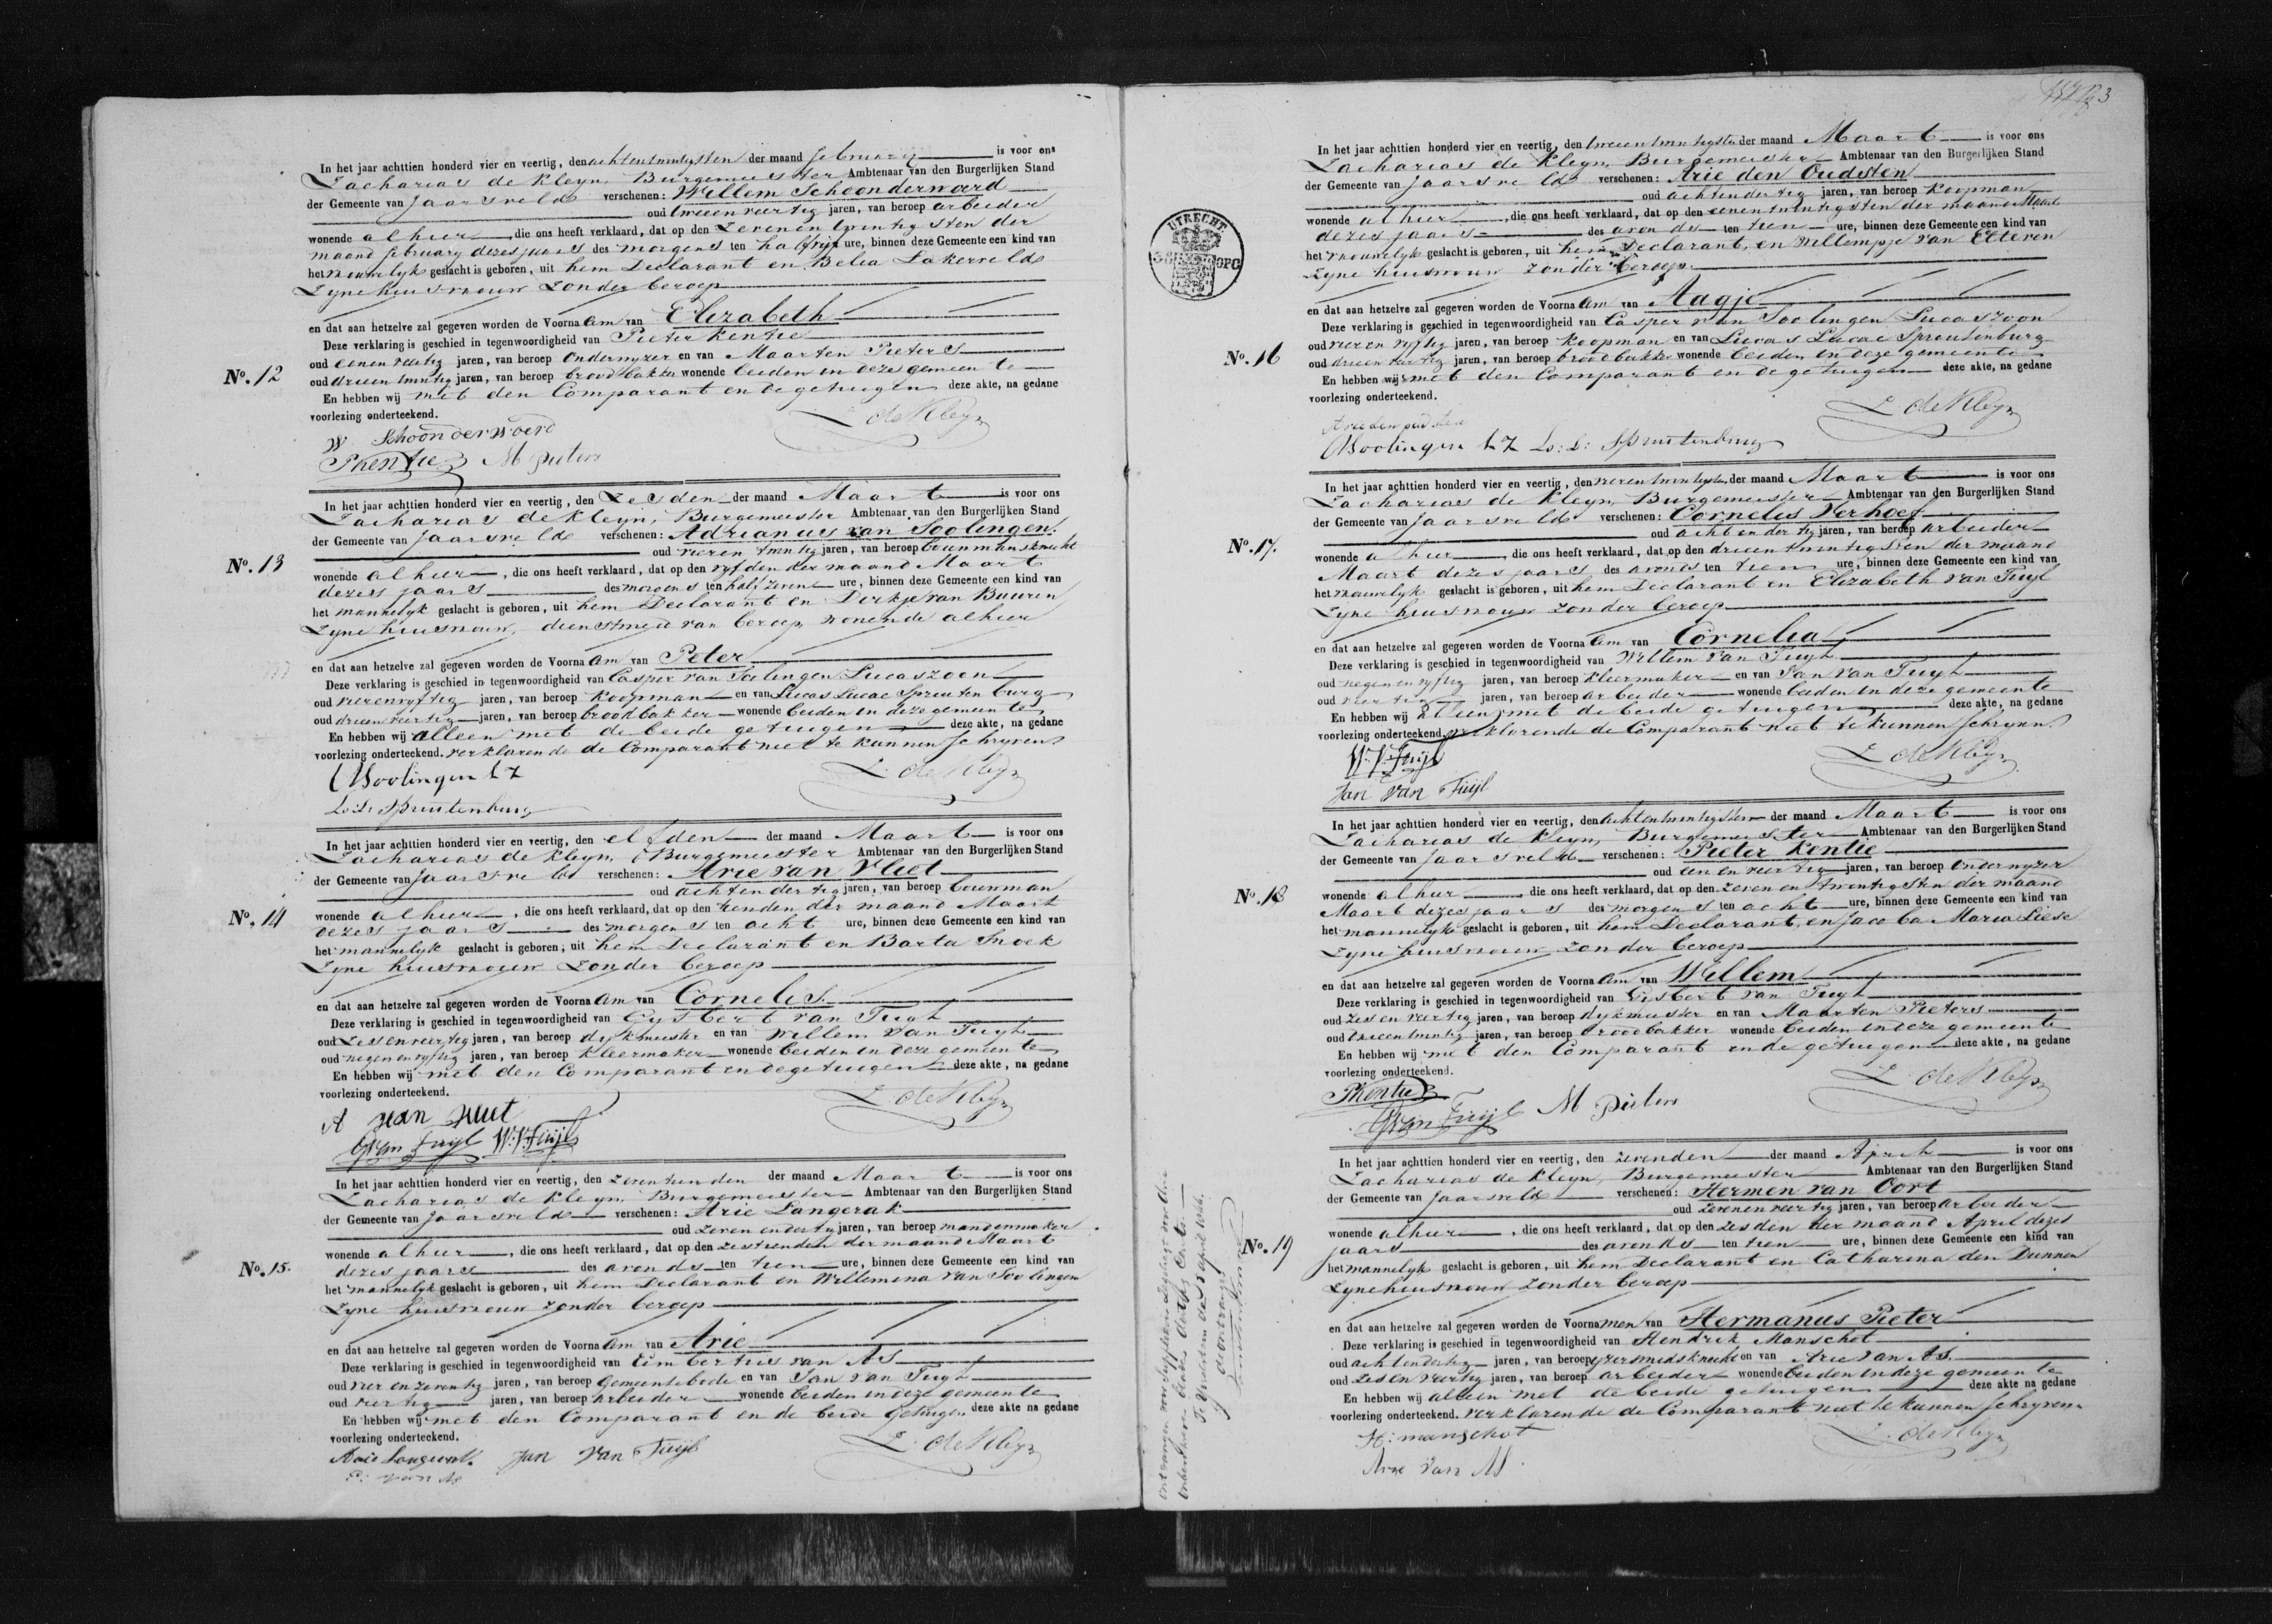 In het jaar achttien honderd vier en veertig, den achtentwintigsten der maand february is voor ons
Zacharias de Kleyn, Burgemeester Ambtenaar van den Burgerlijken Stand
der Gemeente van Jaarsveld verschenen: Willem Schoonderwoerd
oud tweeenveertig jaren, van beroep arbeider
wonende alhier, die ons heeft verklaard, dat op den zevenentwintigsten der
maand february dezes jaars des morgens ten half vyf ure, binnen deze Gemeente een kind van
het vrouwelyk geslacht is geboren, uit hem Declarant en Belia Lakerveld
Zyne huisvrouw zonder beroep
en dat aan hetzelve zal gegeven worden de Voornaam van Elizabeth
Deze verklaring is geschied in tegenwoordigheid van Pieter Kentie
No. 12
oud eenenveertig jaren, van beroep Onderwyzer en van Maarten Pieters
oud drieentwintig jaren, van beroep broodbakker wonende beiden in deze gemeente
En hebben wij met den Comparant en de getuigen deze akte, na gedane
voorlezing onderteekend.
Z de Kleyn
W Schoonderwoerd
PKentie M Pieters
In het jaar achttien honderd vier en veertig, den Zesden der maand Maart is voor ons
Zacharias de Kleyn, Burgemeester Ambtenaar van den Burgerlijken Stand
der Gemeente van Jaarsveld verschenen: Adrianus van Soolingen.
No. 13
oud vierentwintig jaren, van beroep bouwmansknecht
wonende alhier, die ons heeft verklaard, dat op den vyfden der maand Maart
dezes jaars des morgens ten half zeven ure, binnen deze Gemeente een kind van
het mannelyk geslacht is geboren, uit hem Declarant en Dirkje van Buuren
Zyne huisvrouw, dienstmeid van beroep, wonende alhier
en dat aan hetzelve zal gegeven worden de Voornaam van Peter
Deze verklaring is geschied in tegenwoordigheid van Casper van Soolingen Lucaszoon
oud vierenvyftig jaren, van beroep Koopman en van Lucas Lucae Spruitenburg
oud drieenveertig jaren, van beroep broodbakker wonende beiden in deze gemeente
En hebben wij alleen met de beide getuigen deze akte, na gedane
voorlezing onderteekend. verklarende de Comparant niet te kunnen schryven
Z. de Kleyn
CVSoolingen LZ
Ls: L: Spruitenburg
In het jaar achttien honderd vier en veertig, den elfden der maand Maart is voor ons
Zacharias de Kleyn, Burgemeester Ambtenaar van den Burgerlijken Stand
der Gemeente van Jaarsveld verschenen: Arie van Vliet
oud achtendertig jaren, van beroep bouwman
No. 14
wonende alhier, die ons heeft verklaard, dat op den tienden der maand Maart
dezes jaars des morgens ten acht ure, binnen deze Gemeente een kind van
het mannelyk geslacht is geboren, uit hem Declarant en Barta Snoek
Zyne huisvrouw zonder beroep
en dat aan hetzelve zal gegeven worden de Voornaam van Cornelis.
Deze verklaring is geschied in tegenwoordigheid van Gysbert van Tuyl
oud Zesenveertig jaren, van beroep dykmeester en van Willem van Tuyl
oud negenenvyftig jaren, van beroep Kleermaker wonende beiden in deze gemeente
En hebben wij met den Comparant en de getuigen deze akte, na gedane
voorlezing onderteekend.
Z. de Kleyn
A van Vliet
GVan Tuijl W:V:Tuijl
In het jaar achttien honderd vier en veertig, den zeventienden der maand Maart is voor ons
Zacharias de Kleyn, Burgemeester Ambtenaar van den Burgerlijken Stand
der Gemeente van Jaarsveld verschenen: Arie Langerak
oud zevenendertig jaren, van beroep mandenmaker
wonende alhier, die ons heeft verklaard, dat op den zestienden der maand Maart
No. 15.
dezes jaars des avonds ten tien ure, binnen deze Gemeente een kind van
het mannelyk geslacht is geboren, uit hem Declarant en Willemina van Soolingen
Zyne huisvrouw zonder beroep
en dat aan hetzelve zal gegeven worden de Voornaam van Arie
Deze verklaring is geschied in tegenwoordigheid van Eimbertus van As
oud vier en zeventig jaren, van beroep Gemeentebode en van Jan van Tuyl
oud veertig jaren, van beroep Arbeider wonende beiden in deze gemeente
En hebben wij met den Comparant en de beide Getuigen deze akte na gedane
voorlezing onderteekend.
Z. de Kleyn
Arie Langerak. Jan van Tuijl
E: van As
3
UTRECHT
In het jaar achttien honderd vier en veertig, den tweeentwintigste der maand Maart is voor ons
Zacharias de Kleyn, Burgemeester Ambtenaar van den Burgerlijken Stand
der Gemeente van Jaarsveld verschenen: Arie den Oudsten
oud achtendertig jaren, van beroep Koopman
wonende alhier, die ons heeft verklaard, dat op den eenentwintigsten der maand Maart
dezes jaars des avonds ten tien ure, binnen deze Gemeente een kind van
het vrouwelyk geslacht is geboren, uit hem Declarant, en Willempje van Elteren
Zyne huisvrouw zonder beroep
en dat aan hetzelve zal gegeven worden de Voornaam van Aagje
Deze verklaring is geschied in tegenwoordigheid van Casper van Soolingen Lucaszoon
No. 16
oud vierenvyftig jaren, van beroep Koopman en van Lucas Lucae Spruitenburg
oud drieenveertig jaren, van beroep broodbakker wonende beiden in deze gemeente
En hebben wij met den Comparant en de getuigen deze akte, na gedane
voorlezing onderteekend.
Z de Kleyn
Arie den oudsten
CVSoolingen LZ Ls: L: Spruitenburg
In het jaar achttien honderd vier en veertig, den vierentwintigsten der maand Maart is voor ons
Zacharias de Kleyn, Burgemeester Ambtenaar van den Burgerlijken Stand
der Gemeente van Jaarsveld verschenen: Cornelis Verhoef
oud acht en dertig jaren, van beroep arbeider
No. 17.
wonende alhier, die ons heeft verklaard, dat op den drieentwintigsten der maand
Maart dezes jaars des avonds ten tien ure, binnen deze Gemeente een kind van
het vrouwelyk geslacht is geboren, uit hem Declarant en Elizabeth van Tuyl
Zyne huisvrouw zonder beroep
en dat aan hetzelve zal gegeven worden de Voornaam van Cornelia
Deze verklaring is geschied in tegenwoordigheid van Willem van Tuyl
oud negenenvyftig jaren, van beroep Kleermaker en van Jan van Tuyl
oud veertig jaren, van beroep arbeider wonende beiden in deze gemeente
En hebben wij alleen met de beide getuigen deze akte, na gedane
voorlezing onderteekend, verklarende de Comparant niet te kunnen schryven.
Z de Kleyn
W:V:Tuijl
Jan van Tuijl
In het jaar achttien honderd vier en veertig, den achtentwintigsten der maand Maart is voor ons
Zacharias de Kleyn, Burgemeester Ambtenaar van den Burgerlijken Stand
der Gemeente van Jaarsveld verschenen: Pieter Kentie
oud een en veertig jaren, van beroep Onderwyzer
No. 18
wonende alhier die ons heeft verklaard, dat op den zeven en twintigsten der maand
Maart dezes jaars des morgens ten acht ure, binnen deze Gemeente een kind van
het mannelyk geslacht is geboren, uit hem Declarant, en Jacoba Maria Liese
Zyne huisvrouw zonder beroep
en dat aan hetzelve zal gegeven worden de Voornaam van Willem
Deze verklaring is geschied in tegenwoordigheid van Gysbert van Tuyl
oud zes en veertig jaren, van beroep dykmeester en van Maarten Pieters
oud drieentwintig jaren, van beroep broodbakker wonende beiden in deze gemeente
En hebben wij met den Comparant en de getuigen deze akte, na gedane
voorlezing onderteekend.
Z. de Kleyn
PKentie
GVan Tuijl M Pieters
In het jaar achttien honderd vier en veertig, den zevenden der maand April is voor ons
Zacharias de Kleyn, Burgemeester Ambtenaar van den Burgerlijken Stand
der Gemeente van Jaarsveld verschenen: Hermen van Oort
oud zevenenveertig jaren, van beroep arbeider
wonende alhier, die ons heeft verklaard, dat op den zesden der maand April dezes
No. 19
jaars des avonds ten tien ure, binnen deze Gemeente een kind van
het mannelyk geslacht is geboren, uit hem Declarant en Catharina den Dunnen
Zyne huisvrouw zonder beroep
en dat aan hetzelve zal gegeven worden de Voornamen van Hermanus Pieter
Deze verklaring is geschied in tegenwoordigheid van Hendrik Manschot
oud achtendertig jaren, van beroep yzersmidsknecht en van Arie van As.
oud zes en veertig jaren, van beroep arbeider wonende beiden in deze gemeente
En hebben wij alleen met de beide getuigen deze akte na gedane
voorlezing onderteekend. verklarende de Comparant niet te kunnen schryven
Z. de Kleyn
H: manschot
Arie van As